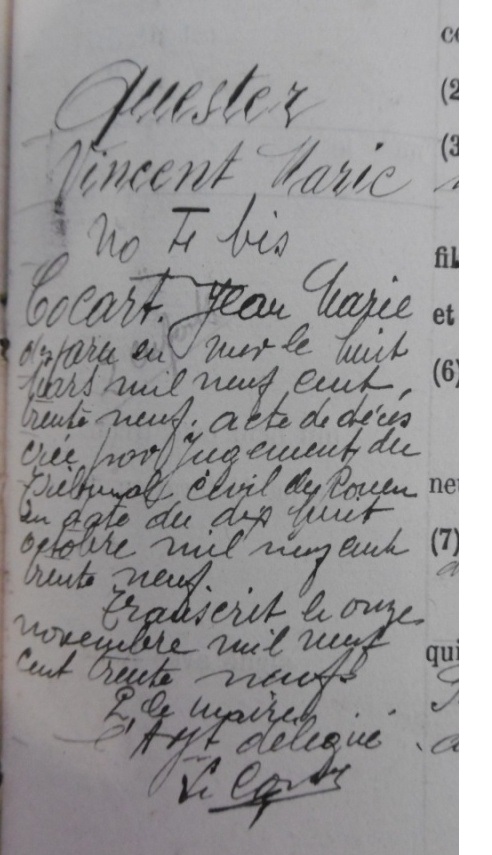 Quester
Vincent Marie
No 7 bis
Cocart. Jean Marie
disparu en mer le huit
Mars mil neuf cent
trente neuf. acte de décès
crée par Jugement du
Tribunal civil de Rouen
en date du dix huit
octobre mil neuf cent
trente neuf.
Transcrit le onze
novembre mil neuf
cent trente neuf.
P. le maire
l'Adjt délégué
Le
co
(2
(3
fil
et
(6)
net
(7)
qui